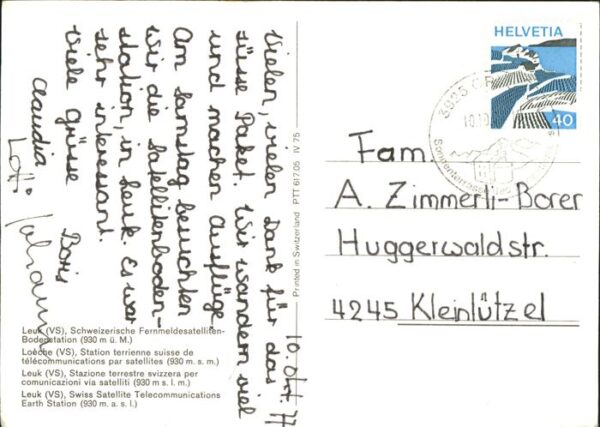 10. Okt. 77
Vielen, vielen Dank für das
süsse Paket. Wir wandern viel
und machen Ausflüge.
Am Samstag besuchten
wir die Satellitenboden-
station, in Leuk. Es war
sehr interessant.
Viele Grüsse Boris
Claudia
Lotti Johann
HELVETIA
40
3953
10.10
Fam.
A. Zimmerli-Borer
Huggerwaldstr.
4245 Kleinlützel
Printed in Switzerland PTT 617.05 IV 75
Leuk (VS), Schweizerische Fernmeldesatelliten-
Bodenstation (930 m ü. M.)
Loèche (VS), Station terrienne suisse de
télécommunications par satellites (930 m s. m.)
Leuk (VS), Stazione terrestre svizzera per
comunicazioni via satelliti (930 m s. l. m.)
Leuk (VS), Swiss Satellite Telecommunications
Earth Station (930 m. a. s. l.)